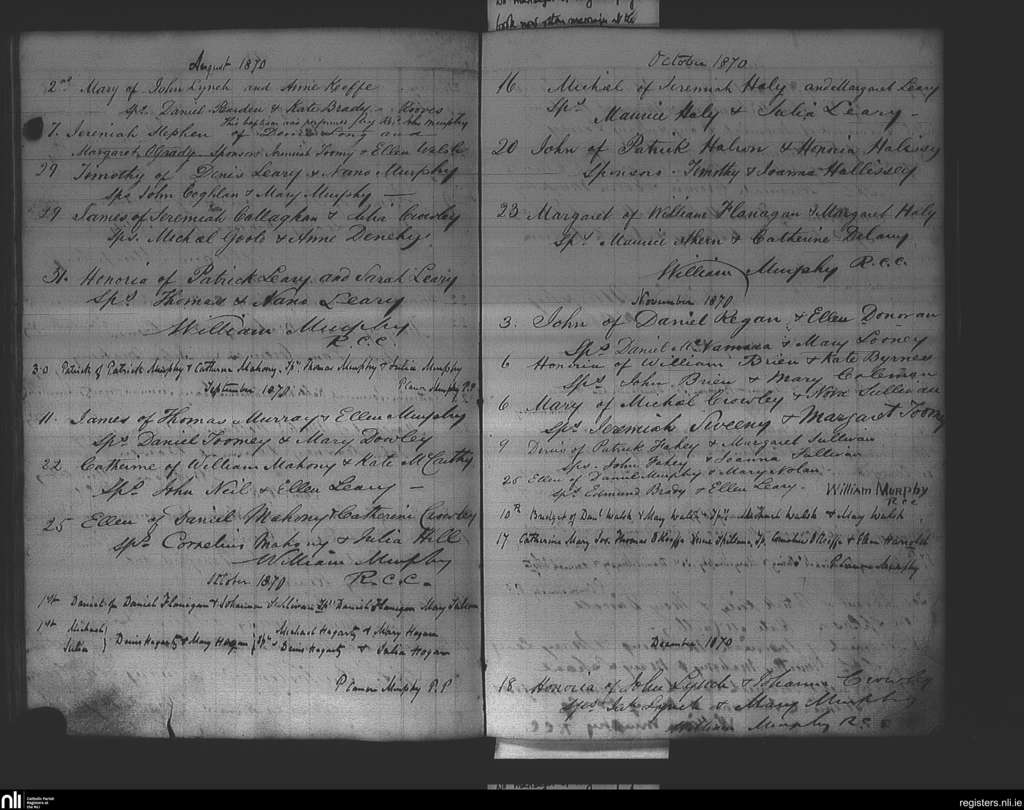 August 1870
2nd Mary of John Lynch and Anne Keoffe
Sps. Daniel Riorden & Kate Brady - Rooves
This baptism was performed by Rev. John Murphy
7. Jeremiah Stephen of Denis Long and
Margaret OGrady Sponsors Jeremiah Toomy & Ellen Walsh
29 Timothy of Denis Leary & Nano Murphy
Sps John Coghlan & Mary Murphy
29 James of Jeremiah Callaghan & Julia Crowley
Sps. Michal Goold & Anne Denehy
31. Honoria of Patrick Leary and Sarah Leary
Sps. Thomas & Nano Leary
William Murphy
R.C.C.
30 Patrick of Patrick Murphy & Catherine Mahony. Sps. Thomas Murphy & Julia Murphy
Murphy P.P.
September 1870
11. James of Thomas Murray & Ellen Murphy
Sps Daniel Toomey & Mary Dowley
22 Catherine of William Mahony & Kate McCarthy
Sps. John Neil & Ellen Leary -
25 Ellen of Daniel Mahony & Catherine Crowley
Sps Cornelius Mahony & Julia Hill
William Murphy
R.C.C.
October 1870
1st Daniel of Daniel Flanagan & Johanna Sullivan Sps Daniel Flanagan Mary
1st Michael
Julia } Denis Hagarty & Mary Hogan { Sps Michael Hagarty & Mary Hogan
Denis Hagarty & Julia Hogan
Murphy P.P.
October 1870
16 Michal of Jeremiah Haly and Margaret Leary
Sps Maurice Haly & Julia Leary -
20 John of Patrick & Honoria Halissey
Sponsors - Timothy & Joanna Hallissey
23 Margaret of William Flanagan & Margaret Haly
Sps Maurice Ahern & Catherine Delany
William Murphy R.C.C.
November 1870
3. John of Daniel Regan & Ellen Donovan
Sps Daniel McNamara & Mary Looney
6 Honoria of William Brien & Kate Byrnes
Sps. John Brien & Mary Coleman
6 Mary of Michal Crowley & Nora Sullivan
Sps Jeremiah Sweeny & Margaret Toomy
9 Denis of Patrick Fahey & Margaret Sullivan
Sps. John Fahey & Joanna Sullivan
25 Ellen of Daniel Murphy & Mary Nolan.
Sps Edmund Brady & Ellen Leary.
William Murphy
R.C.C
10th Bridget of Danl Walsh & Mary Walsh Sps Michael Walsh & Mary Walsh
17 Catherine Mary Thomas OKeeffe Sps. Cornelius OKeeffe & Ellen
Murphy
December 1870
18. Honoria of John Lynch & Johanna Crowley
Sps Lynch & Mary Murphy
William Murphy R.C.C
nli
Catholic Parish
Registers at
the NLI
registers.nli.ie